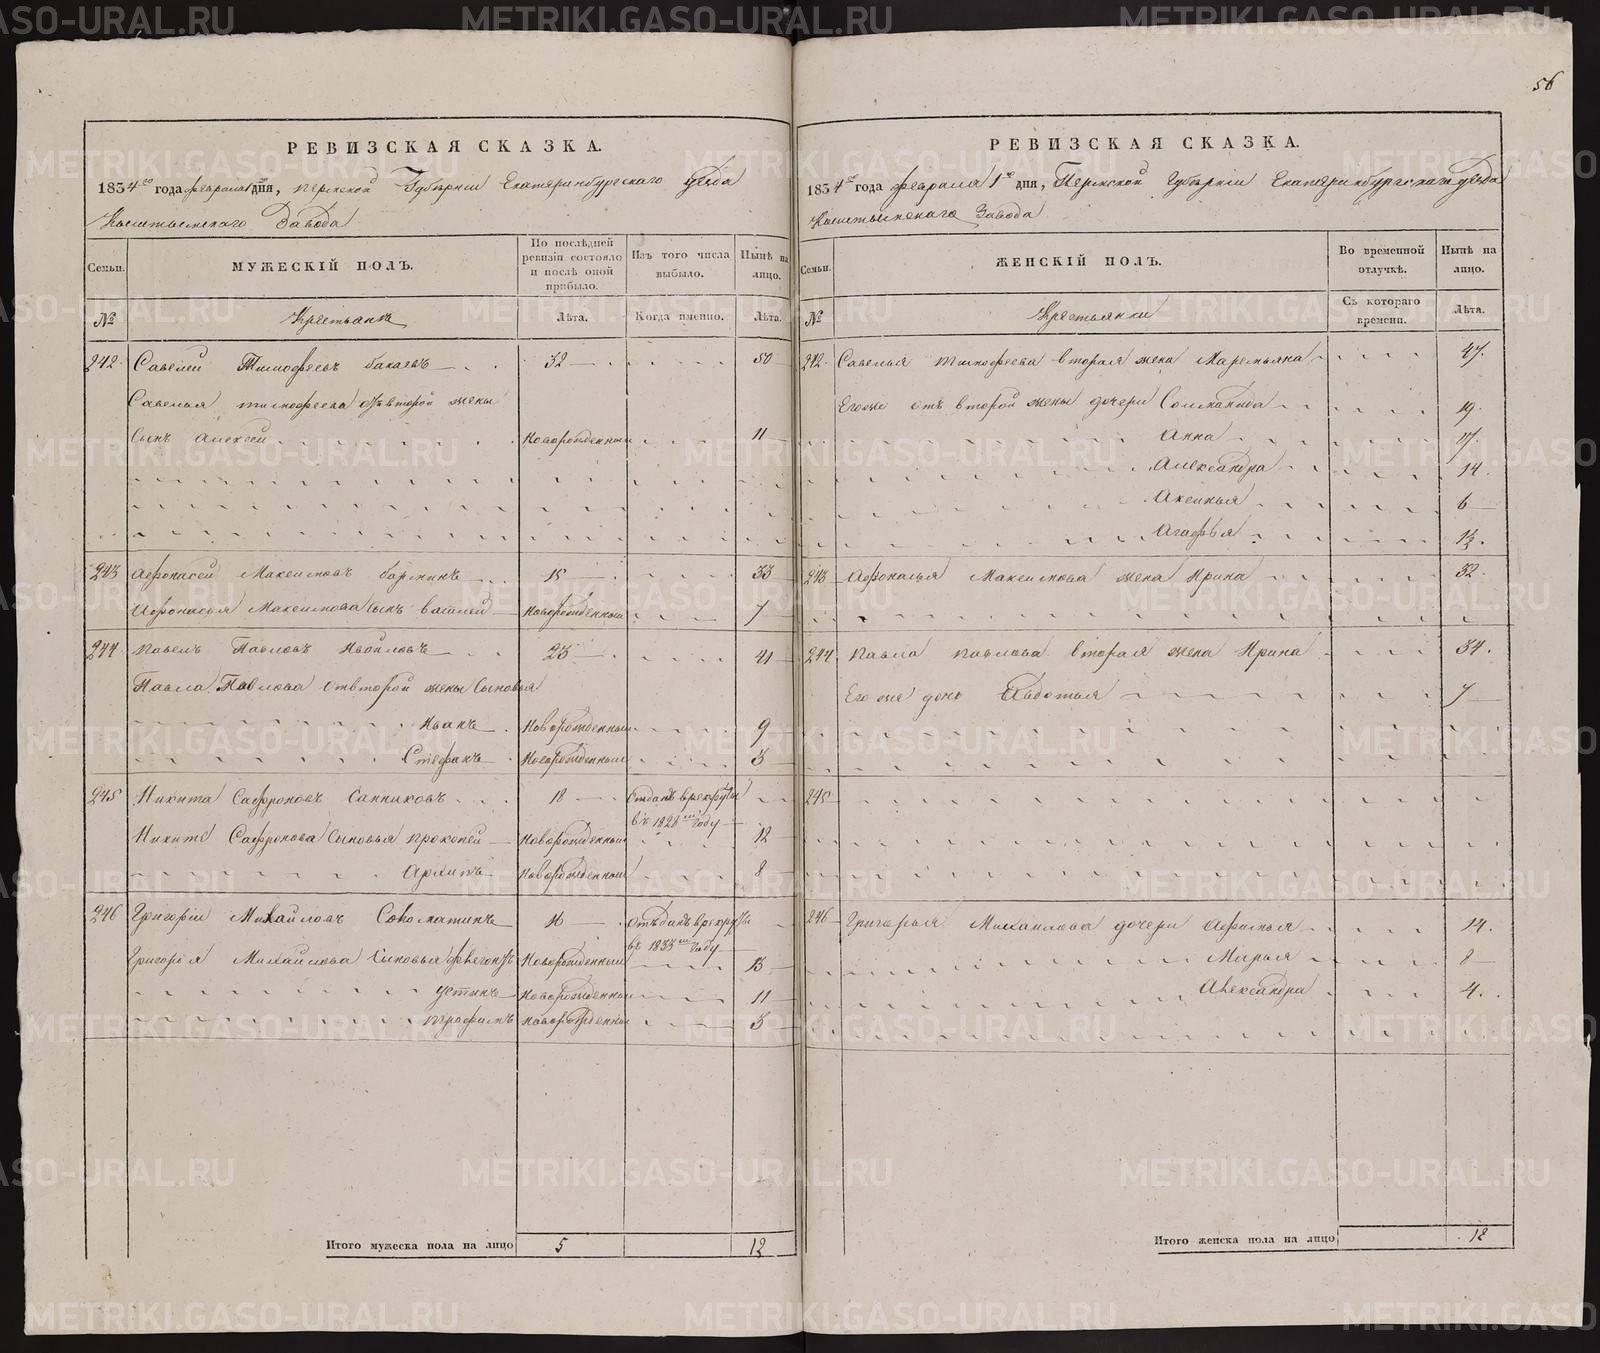 56
РЕВИЗСКАЯ СКАЗКА.
1834го года февраля 1го дня, Пермской Губернiи Екатеринбургскаго уезда
Кыштымскаго Завода
Семьи.
МУЖЕСКIЙ ПОЛЪ.
По послѣдней ревизiи состояло и послѣ оной прибыло.
Изъ того числа выбыло.
Нынѣ на лицо.
№
Крестьянъ
Лѣта.
Когда именно.
Лѣта.
242. Савелей Тимофеевъ 32 50
Савелья Тимофеева отъ второй жены
сынъ Алексей Новорожденный 11
243 Афонасей Максимовъ 15 33
Афонасья Максимова сынъ Новорожденный 7
244 Павелъ Павловъ 23 41
Павла Павлова от второй жены сыновья
Иванъ Новорожденный 9
Стефанъ Новорожденный 3
245 Никита Сафроновъ Санниковъ 18 Отданъ в рекруты
въ 1828мъ году
Никите Сафронова сыновья Прокопей Новорожденный 12
Архипъ Новорожденный 8
246 Григорiй Михайловъ 16 Отъданъ в рекруты
въ 1833мъ году
Григорья Михайлова сыновья Новорожденный 13
Устинъ Новорожденный 11
Трофимъ Новорожденный 3
Итого мужеска пола на лицо 5 12
РЕВИЗСКАЯ СКАЗКА.
1834го года февраля 1го дня, Пермской Губернiи Екатеринбургскаго уезда
Кыштымскаго Завода
Семьи.
ЖЕНСКIЙ ПОЛЪ.
Во временной отлучкѣ.
Нынѣ на лицо.
№
Крестьянки
Съ котораго времени.
Лѣта.
242. Савелья Тимофеева вторая жена Маремьяна 47.
Егоже отъ второй жены дочери Соломанида 19.
Анна 17.
Александра 14.
Аксинья 6
Агафья 12.
243 Афонасья Максимова жена Ирина 32.
244 Павла Павлова вторая жена Ирина 34.
Его же дочь Авдотья 7
245
246 Григорья Михаилова дочери Афимья 14.
Марья 8
Александра 4.
Итого женска пола на лицо 12